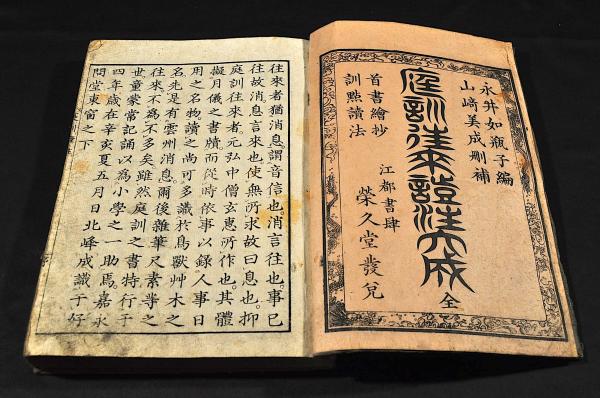 永井如瓶子編
山﨑美成刪補
庭訓往來證注大成 全
首書繪抄
訓點讀法
江都書肆
榮久堂發兌
往來者猶消息。謂音信也。消言往也。事已
往故消息言來也使無所求故曰息也。抑
庭訓往來者。元弘中僧玄惠所作也。其體
擬月儀之書牘而從時依事以錄人事日
用之名物讀之尚可多識於鳥獸艸木之
名先是有雲州消息。爾後雜筆尺素等之
往來不為不多矣雖然庭訓之書特行于
世童蒙常記誦以為小學之一助焉嘉永
四年歲在辛亥夏五月日北峰成識于好
問堂東窗之下